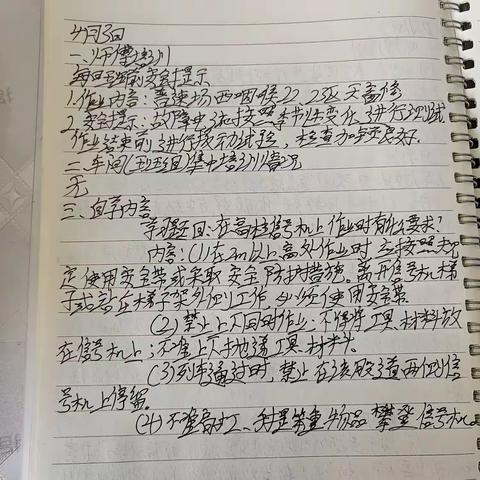 4月3日
一、师傅培训
每日班前安全提示
1.作业内容：普速场西咽喉22 25 天窗修
2.安全提示：故障电流按照季节性变化进行测试
作业结束前进行扳动试验，检查加锁良好.
二、车间(班组)集中培训情况
无
三、自学内容
学习题目：在高柱信号机上作业时有什么要求？
内容：(1)在2m以上高处作业时应按照规
定使用安全带或采取安全防护措施。离开信号机梯
子或站在梯子架外侧工作必须使用安全带
(2)禁止上下同时作业；不得将工具、材料放
在信号机上；不准上下抛递工具、材料。
(3)列车通过时，禁止在该股道两侧信
号机上停留。
(4)不准高打、背重物品攀登信号机。